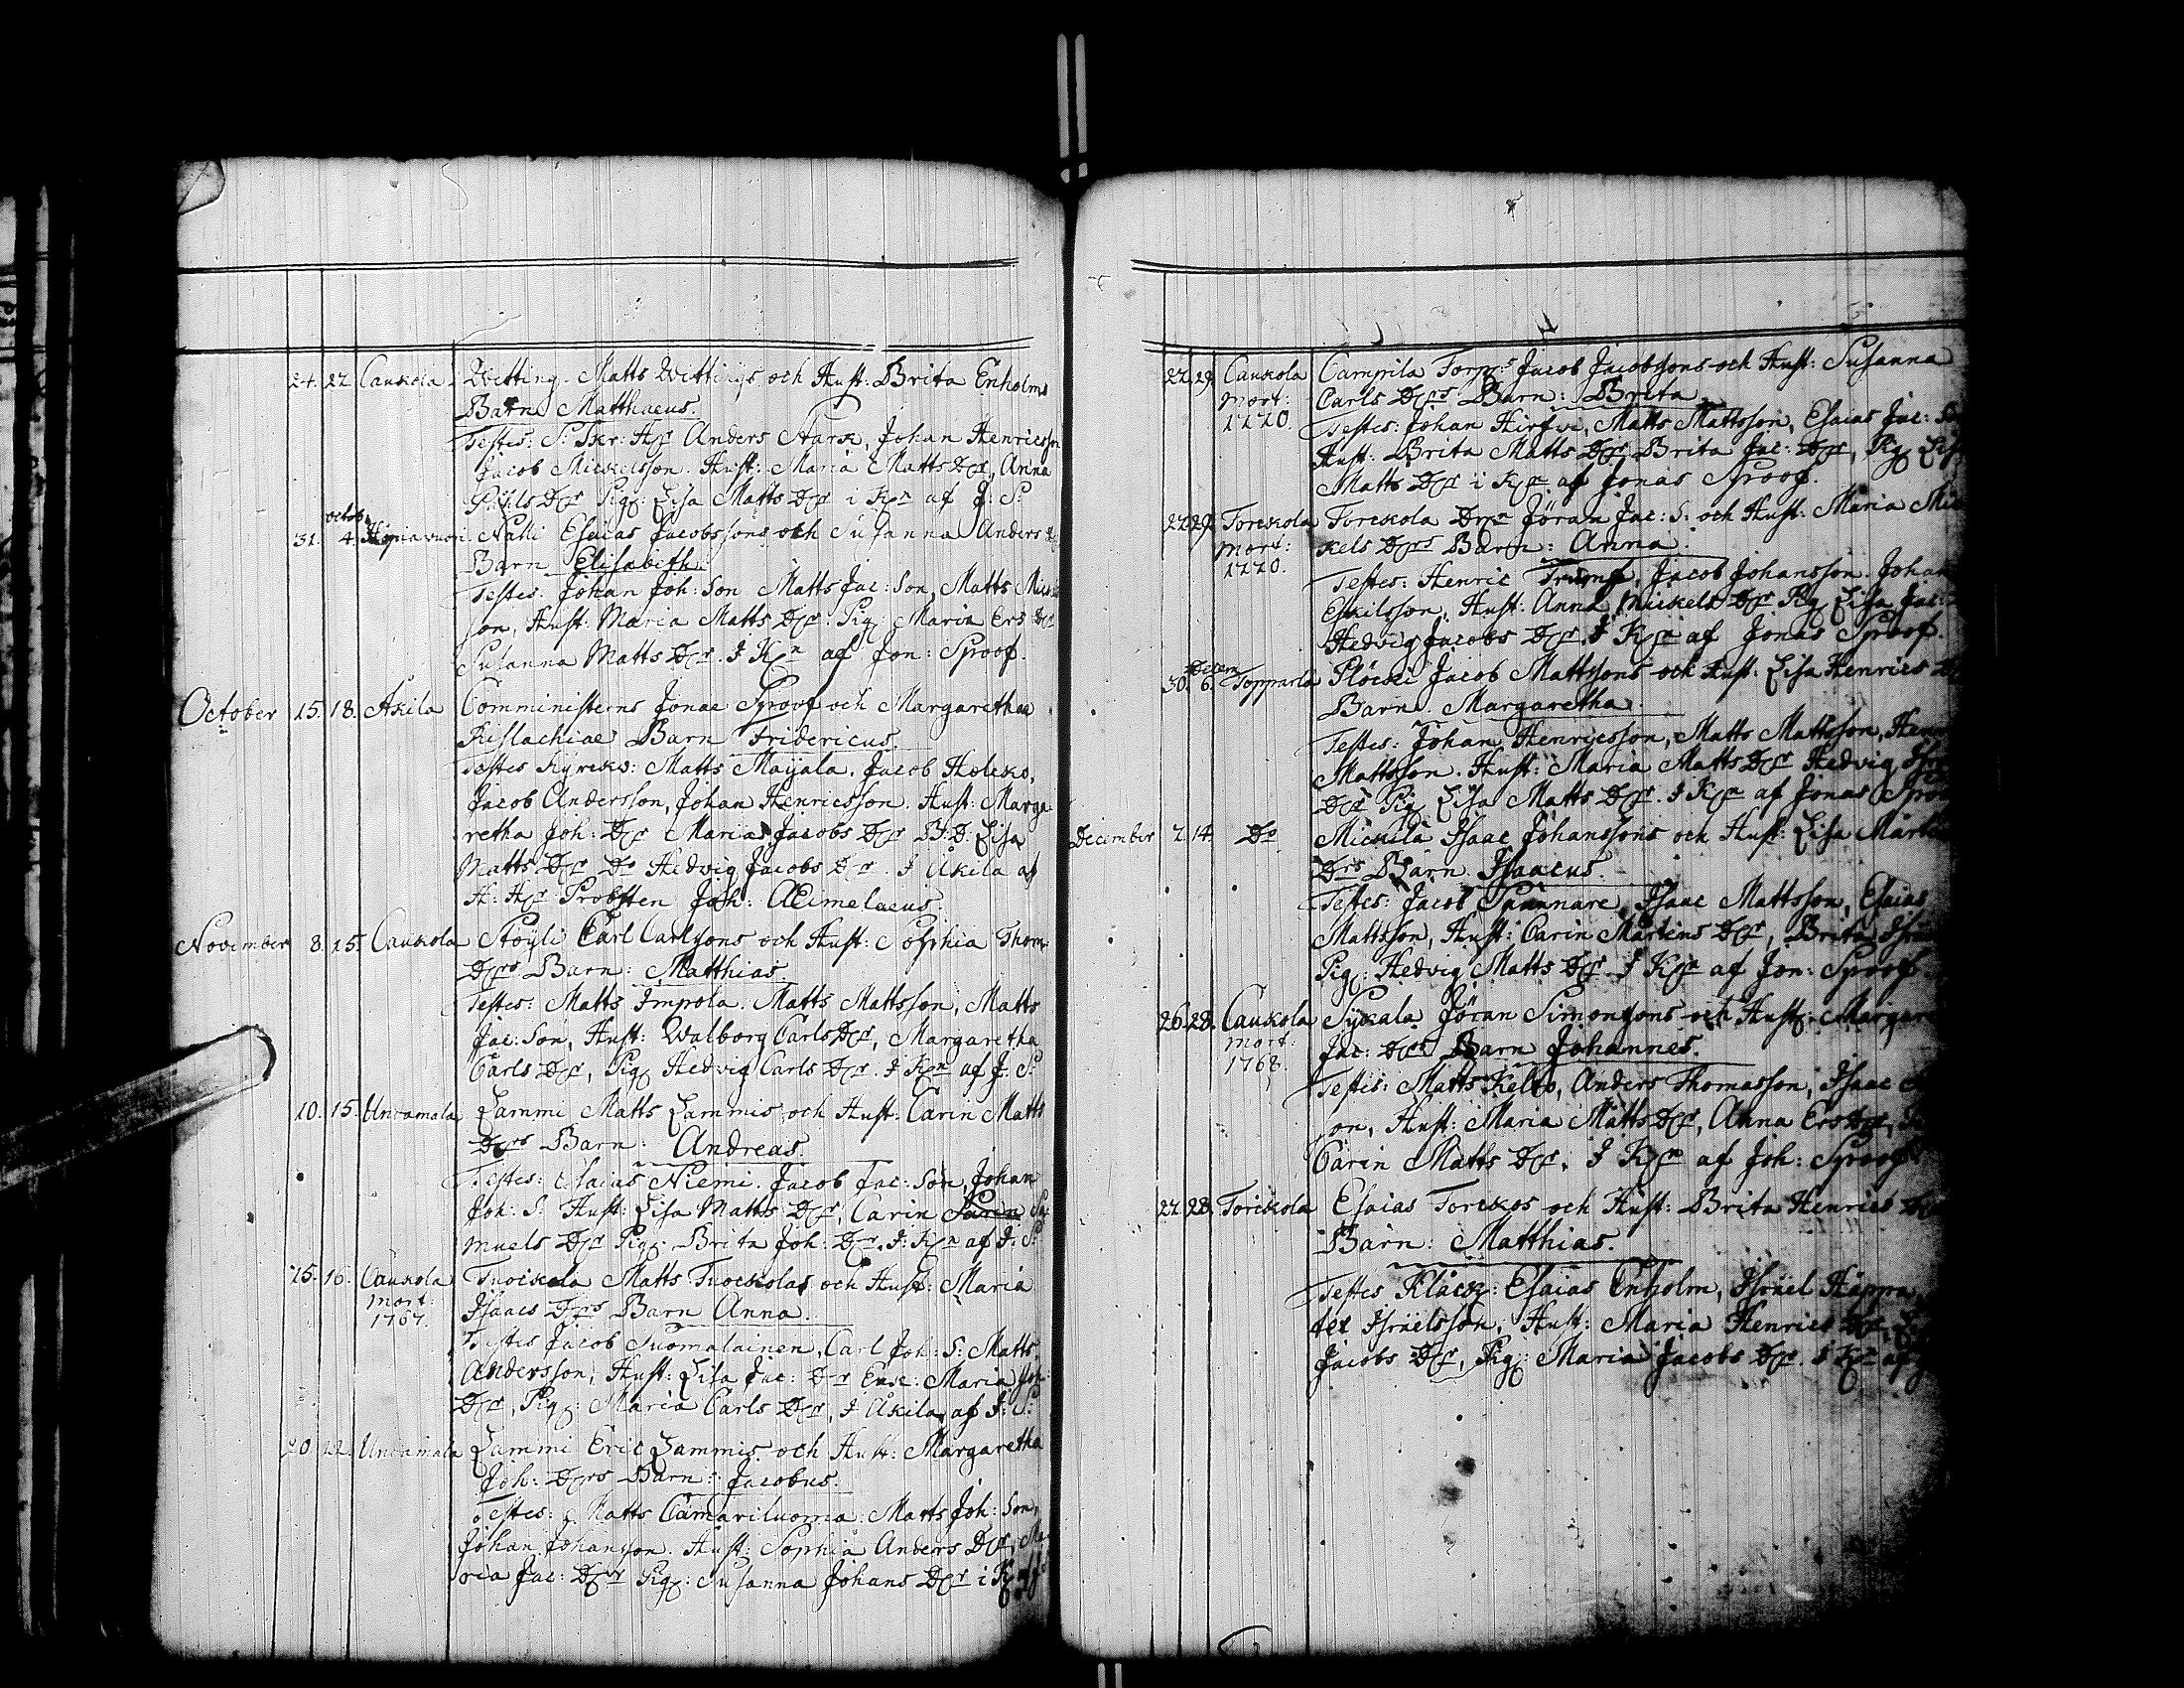 24. 27. Caukola. Wetting. Matts Wettings och Hust: Brita Enholms
Barn Matthaeus.
Testes: S: Skr: Hr Anders Stark, Johan Henricsson
Jacob Mickelsson. Hust: Maria Matts Dr, Anna
Påhls Dr Pig: Lisa Matts Dr i Kn af J: S:
octob:
31. 4. Nalli Esaias Jacobssons och Susanna Anders
Barn Elisabeth.
Testes: Johan Joh: Son Matts Jac: Son, Matts Mickels
son, Hust: Maria Matts Dr. Pig: Maria Ers Dr
Susanna Matts Dr. I Kn af Jon: Sproof.
October 15. 18. Akila Comministerns Jonae Sproof och Margaretha
Rislachiae Barn Fridericus.
Testes Kyrckv: Matts Maijala. Jacob Holcko,
Jacob Andersson, Johan Henricsson. Hust: Marga
retha Joh: Dr Maria Jacobs Dr B:D: Lisa
Matts Dr Do Hedvig Jacobs Dr. I Åkila af
H: Hr Probsten Joh: Aeimelaeus.
November 8. 15. Caukola Stöyli Carl Carlsons och Hust: Sophia Thom
Drs Barn: Matthias.
Testes: Matts Impola. Matts Mattsson, Matts
Jac: Son, Hust: Walborg Carls Dr, Margaretha
Carls Dr, Pig Hedvig Carls Dr. I Kn af J: S:
10. 15. Untamala Lammi Matts Lammis och Hust: Carin Matts
Drs Barn: Andreas.
Testes: Esaias Niemi. Jacob Jac: Son, Johan
Joh: S: Hust: Lisa Matts Dr, Carin Sa
muels Dr Pig: Brita Joh: Dr. I: Kn af J: S:
15. 16. Caukola Tuockola Matts Tuockolas och Hust: Maria
mort: Isaacs Drs Barn Anna.
1767.
Testes Jacob Suomalainen, Carl Joh: S: Matts
Andersson, Hust: Lisa Jac: Dr Enk: Maria Joh:
Dr, Pig: Maria Carls Dr, I Åkila af J: S:
20. 22. Untamala Lammi Eric Lammis och Hust: Margaretha
Joh: Drs Barn: Jacobus.
Testes: Matts Camariluoma: Matts Joh: Son,
Johan Johansson. Hust: Sophia Anders Dr, Ma
ria Jac: Dr Pig: Susanna Johans Dr i K af
27. 29. Caukola Campila Torps Jacob Jacobssons och Hust: Susanna
mort: Carls Drs Barn: Brita.
1770. Testes: Johan Hirfve, Matts Mattsson, Esaias Jac:
Hust: Brita Matts Dr, Brita Jac: Dr, Pig
Matts Dr i Kn af Jonas Sproof.
27. 29. Torckola Torckola Drn Jöran Jac: S: och Hust: Maria Mic
mort: kels Drs Barn: Anna.
1770.
Testes: Henric Trumf, Jacob Johansson. Johan
Eskilsson, Hust: Anna Mickels Dr Pig Lisa Jac:
Hedvig Jacobs Dr. I Kn af Jonas Sproof.
Decem
30. 6. Topparla Plöcki Jacob Mattssons och Hust: Lisa Henrics
Barn. Margaretha.
Testes: Johan Henricsson, Matts Mattsson, Henr
Mattsson. Hust: Maria Matts Dr Hedvig
Dr Pig Lisa Matts Dr. I Kn af Jonas Sproo
December 7. 14. Do Mickila Isaac Johanssons och Hust: Lisa Mårte
Drs Barn Isaacus.
Testes: Jacob Sannare, Isaac Mattsson, Esaias
Mattsson, Hust: Carin Mårtens Dr, Brita
Pig: Hedvig Matts Dr. I Kn af Jon: Sproof.
26. 28. Caukola Sykala Jöran Simonsons och Hust: Margare
mort: Jac: Drs Barn Johannes.
1768.
Testes: Matts Kelto, Anders Thomasson, Isaac
on, Hust: Maria Matts Dr, Anna Ers Dr,
Carin Matts Dr. I Kn af Joh: Sproof
27. 28. Torckola Esaias Torckos och Hust: Brita Henrics
Barn: Matthias.
Testes Klåck: Esaias Enholm, Israel Happa,
ter Israelsson, Hust: Maria Henrics Dr,
Jacobs Dr, Pig: Maria Jacobs Dr. I Kn af